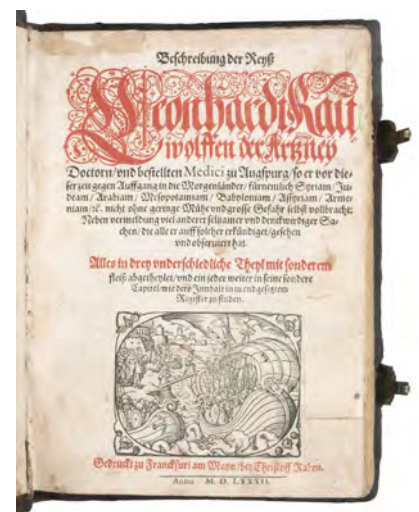 Beschreibung der Reyß
Leonhardi Rau
wolffen der Artzney
Doctorn / vnd bestellten Medici zu Augspurg / so er vor die-
ser zeit gegen Auffgang in die Morgenländer / fürnemlich Syriam / Ju-
deam / Arabiam / Mesopotamiam / Babyloniam / Assyriam / Arme-
niam / ꝛc. nicht ohne geringe Mühe vnd grosse Gefahr selbst vollbracht:
Neben vermeldung viel anderer seltzamer vnd denckwirdiger Sa-
chen / die alle er auff solcher erkündiget / gesehen
vnd obseruiert hat.
Alles in drey vnderschiedliche Theyl mit sonderem
fleiß abgetheylet / vnd ein jeder weiter in seine sondere
Capitel / wie dero Innhalt in zu end gesetztem
Register zu finden.
Gedruckt zu Franckfurt am Mayn / bey Christoff Raben.
Anno M. D. LXXXII.